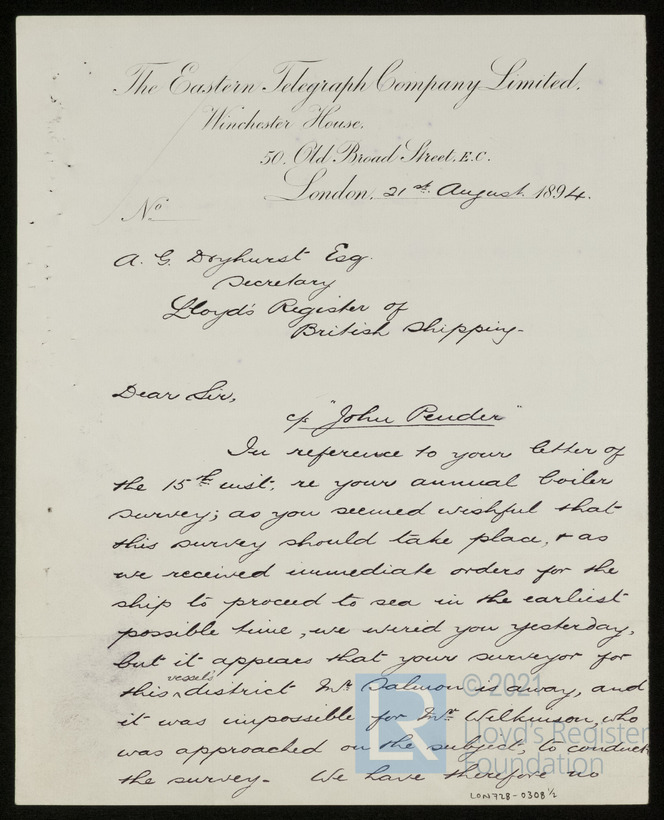 The Eastern Telegraph Company Limited.
Winchester House.
50, Old Broad Street, E.C.
London, 21st August 1894.
No
A. G. Dryhurst Esq.
Secretary
Lloyd's Register of
British Shipping.
Dear Sir,
c/s "John Pender"
In reference to your letter of
the 15th inst. re your annual boiler
survey; as you seemed wishful that
this survey should take place, & as
we received immediate orders for the
ship to proceed to sea in the earliest
possible time, we wired you yesterday,
but it appears that your surveyor for
vessels'
this district Mr. Salmon is away, and
it was impossible for Mr. Wilkinson, who
was approached on the subject, to conduct
the survey. We have therefore no
LR
© 2021
Lloyd's Register
Foundation
LON728-0308 1/2